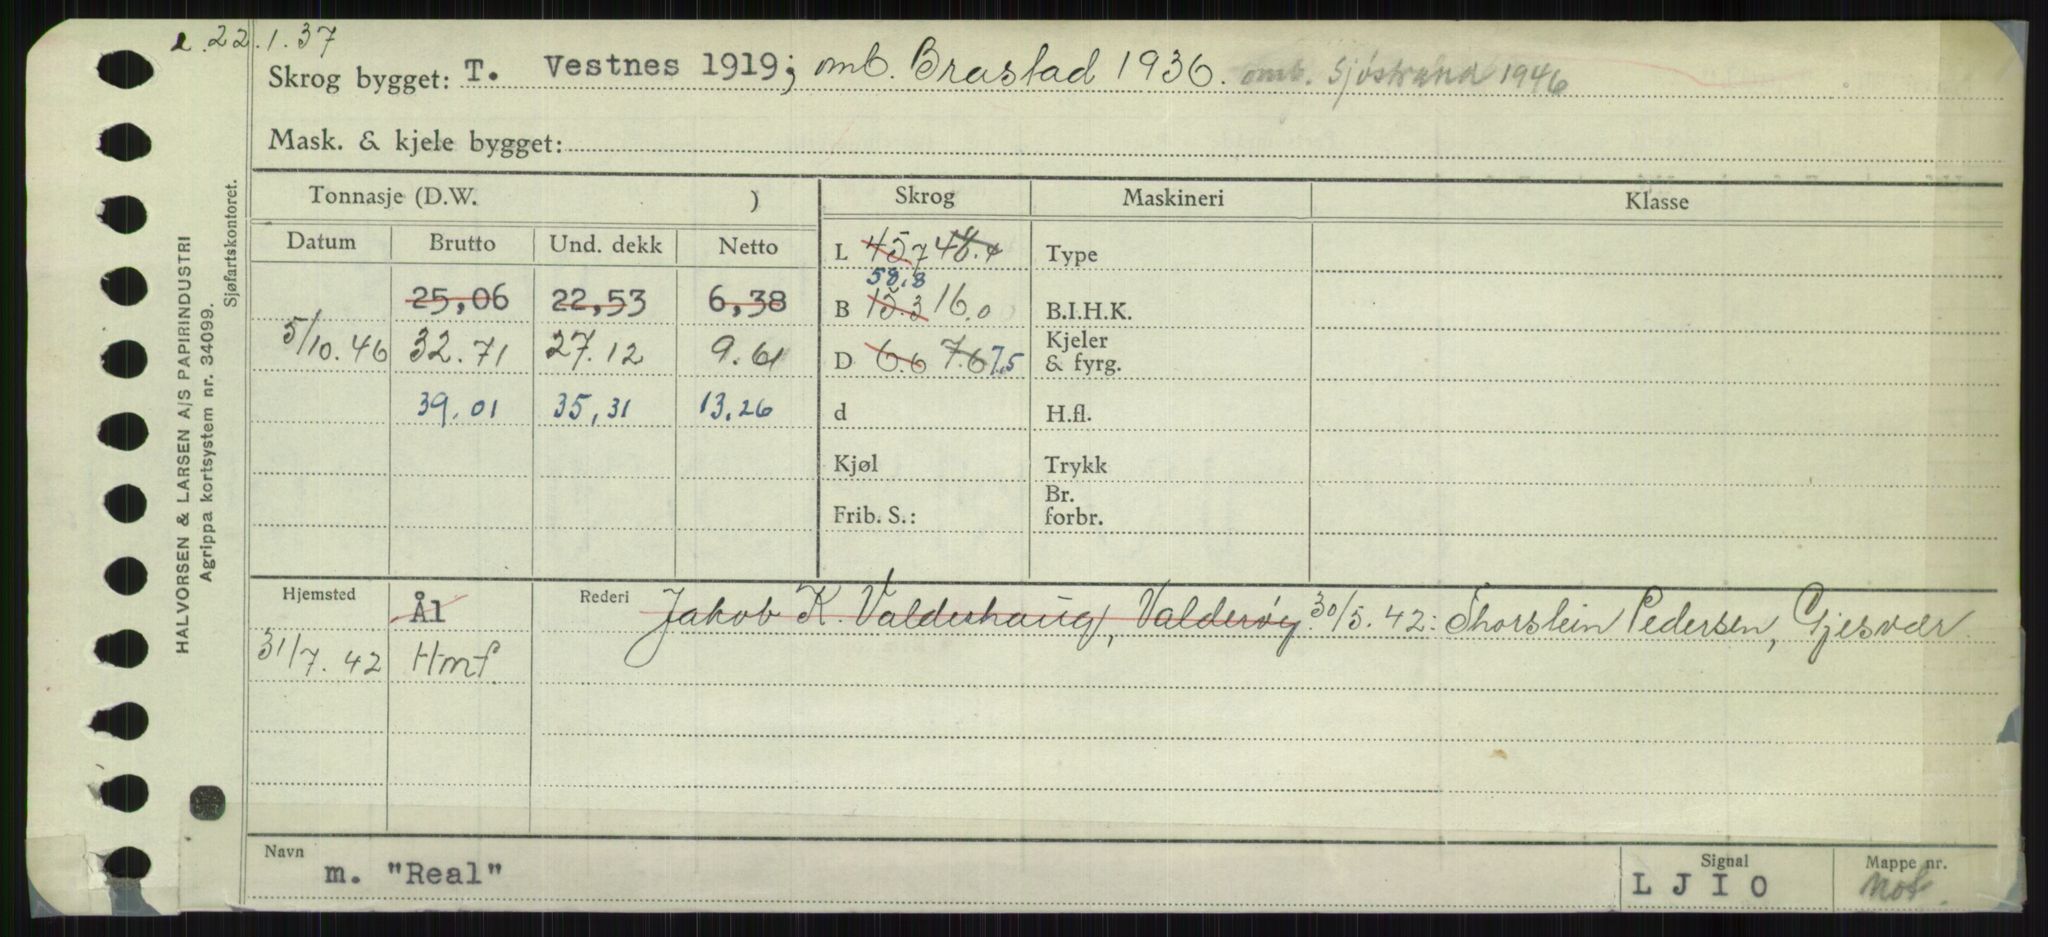 e. 22.1.37
Skrog bygget: T. Vestnes 1919; omb. Brastad 1936. omb. Sjöstrand 1946
Mask. & kjele bygget:
Tonnasje (D.W. ) Skrog Maskineri Klasse
Datum Brutto Und. dekk Netto
L 45,7 48.4 Type
58,8
25,06 22,53 6,38 B 15.3 16.0 B.I.H.K.
5/10.46 32.71 27.12 9.61 D 6.6 7.6 7.5 Kjeler & fyrg.
39,01 35,31 13,26 d H.fl.
Kjøl Trykk
Frib. S.: Br. forbr.
Hjemsted Ål Rederi Jakob K. Valderhaug, Valderöy. 30/5.42: Thorstein Pedersen, Gjesvær
31/7.42 Hmf.
Navn m. "Real" Signal LJIO Mappe nr. Mof.
HALVORSEN & LARSEN A/S PAPIRINDUSTRI
Agrippa kortsystem nr. 34099.
Sjøfartskontoret.